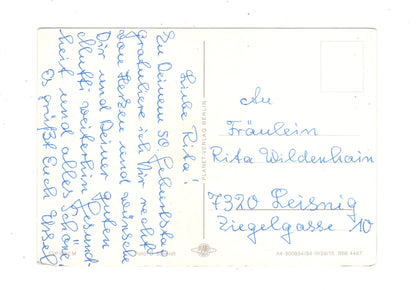 Liebe Rita!
Zu Deinem 50. Geburtstag
gratuliere ich Dir recht
von Herzen und wünsche
Dir und Deiner guten
Mutti weiterhin Gesund-
heit und alles Schöne.
Es grüßt Euch Ursel
PLANET-VERLAG BERLIN
An
Fräulein
Rita Wildenhain
7320 Leisnig
Ziegelgasse 10